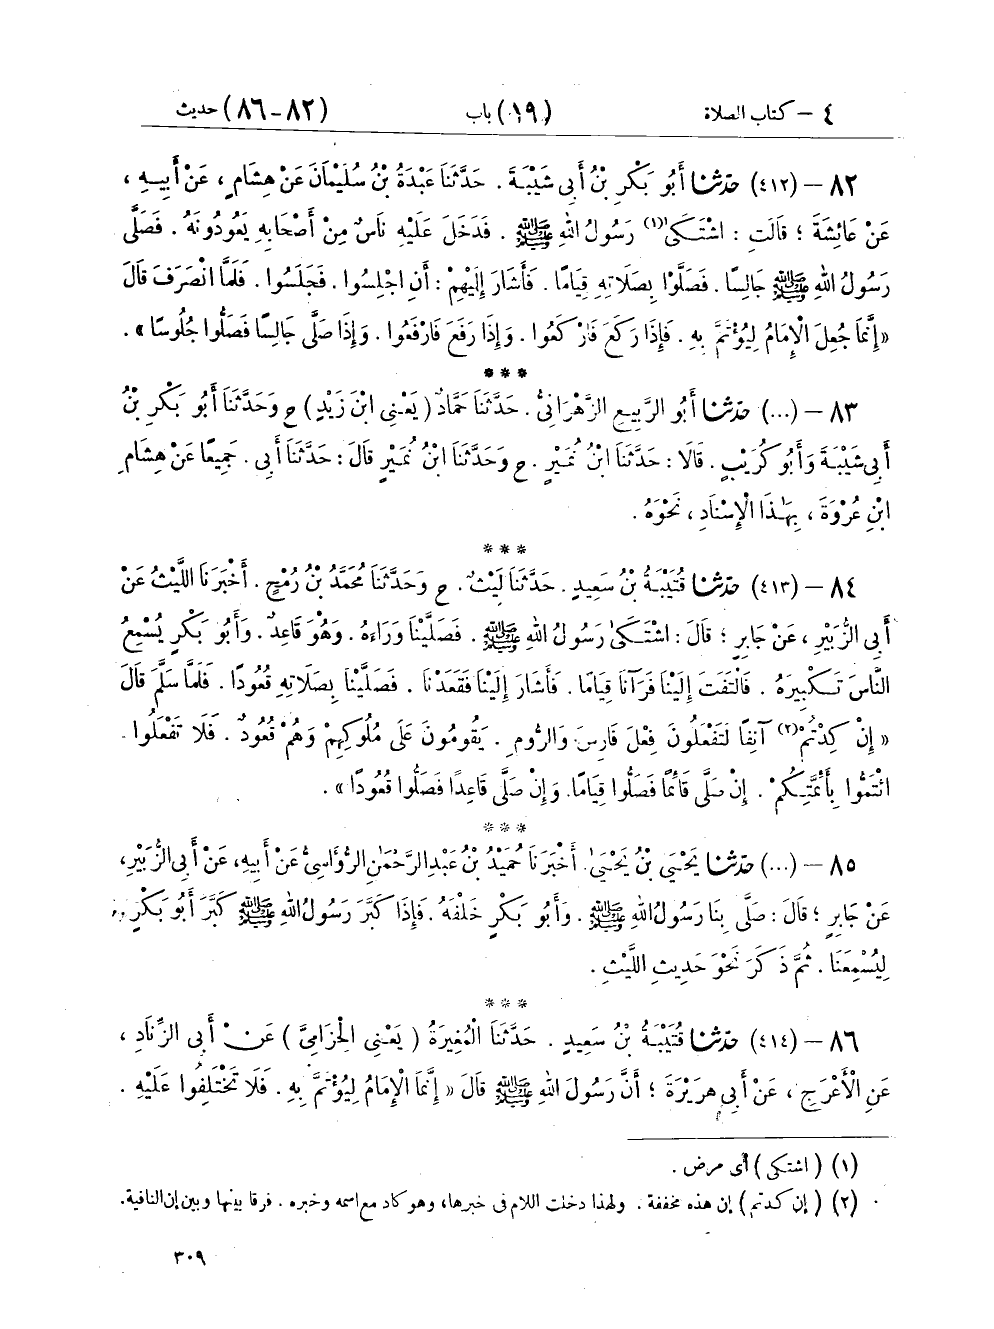 ٤ – كتاب الصلاة (١٩) باب (٨٢-٨٦) حديث
٨٢ – (٤١٢) حَدَّثَنَا أَبُو بَكْرِ بْنُ أَبِي شَيْبَةَ . حَدَّثَنَا عَبْدَةُ بْنُ سُلَيْمَانَ عَنْ هِشَامٍ ، عَنْ أَبِيهِ ،
عَنْ عَائِشَةَ ؛ قَالَتِ : اشْتَكَى(١) رَسُولُ اللهِ ﷺ . فَدَخَلَ عَلَيْهِ نَاسٌ مِنْ أَصْحَابِهِ يَعُودُونَهُ . فَصَلَّى
رَسُولُ اللهِ ﷺ جَالِسًا . فَصَلَّوْا بِصَلَاتِهِ قِيَامًا . فَأَشَارَ إِلَيْهِمْ : أَنِ اجْلِسُوا . فَجَلَسُوا . فَلَمَّا انْصَرَفَ قَالَ
«إِنَّمَا جُعِلَ الْإِمَامُ لِيُؤْتَمَّ بِهِ . فَإِذَا رَكَعَ فَارْكَعُوا . وَإِذَا رَفَعَ فَارْفَعُوا . وَإِذَا صَلَّى جَالِسًا فَصَلُّوا جُلُوسًا» .
***
٨٣ – (...) حَدَّثَنَا أَبُو الرَّبِيعِ الزَّهْرَانِيُّ . حَدَّثَنَا حَمَّادٌ (يَعْنِي ابْنَ زَيْدٍ) ح وَحَدَّثَنَا أَبُو بَكْرِ بْنُ
أَبِي شَيْبَةَ وَأَبُو كُرَيْبٍ . قَالَا : حَدَّثَنَا ابْنُ نُمَيْرٍ . ح وَحَدَّثَنَا ابْنُ نُمَيْرٍ قَالَ : حَدَّثَنَا أَبِي . جَمِيعًا عَنْ هِشَامِ
ابْنِ عُرْوَةَ ، بِهٰذَا الْإِسْنَادِ ، نَحْوَهُ .
***
٨٤ – (٤١٣) حَدَّثَنَا قُتَيْبَةُ بْنُ سَعِيدٍ . حَدَّثَنَا لَيْثٌ . ح وَحَدَّثَنَا مُحَمَّدُ بْنُ رُمْحٍ . أَخْبَرَنَا اللَّيْثُ عَنْ
أَبِي الزُّبَيْرِ ، عَنْ جَابِرٍ ؛ قَالَ : اشْتَكَى رَسُولُ اللهِ ﷺ . فَصَلَّيْنَا وَرَاءَهُ . وَهُوَ قَاعِدٌ . وَأَبُو بَكْرٍ يُسْمِعُ
النَّاسَ تَكْبِيرَهُ . فَالْتَفَتَ إِلَيْنَا فَرَآنَا قِيَامًا . فَأَشَارَ إِلَيْنَا فَقَعَدْنَا . فَصَلَّيْنَا بِصَلَاتِهِ قُعُودًا . فَلَمَّا سَلَّمَ قَالَ
« إِنْ كِدْتُمْ(٢) آنِفًا لَتَفْعَلُونَ فِعْلَ فَارِسَ وَالرُّومِ . يَقُومُونَ عَلَى مُلُوكِهِمْ وَهُمْ قُعُودٌ . فَلَا تَفْعَلُوا .
ائْتَمُّوا بِأَئِمَّتِكُمْ . إِنْ صَلَّى قَائِمًا فَصَلُّوا قِيَامًا . وَإِنْ صَلَّى قَاعِدًا فَصَلُّوا قُعُودًا» .
***
٨٥ – (...) حَدَّثَنَا يَحْيَى بْنُ يَحْيَىٰ . أَخْبَرَنَا حُمَيْدُ بْنُ عَبْدِ الرَّحْمٰنِ الرُّؤَاسِيُّ عَنْ أَبِيهِ، عَنْ أَبِي الزُّبَيْرِ،
عَنْ جَابِرٍ ؛ قَالَ : صَلَّى بِنَا رَسُولُ اللهِ ﷺ . وَأَبُو بَكْرٍ خَلْفَهُ . فَإِذَا كَبَّرَ رَسُولُ اللهِ ﷺ كَبَّرَ أَبُو بَكْرٍ .
لِيُسْمِعَنَا . ثُمَّ ذَكَرَ نَحْوَ حَدِيثِ اللَّيْثِ .
***
٨٦ – (٤١٤) حَدَّثَنَا قُتَيْبَةُ بْنُ سَعِيدٍ . حَدَّثَنَا الْمُغِيرَةُ (يَعْنِي الْحِزَامِيَّ) عَنْ أَبِي الزِّنَادِ ،
عَنِ الْأَعْرَجِ ، عَنْ أَبِي هُرَيْرَةَ ؛ أَنَّ رَسُولَ اللهِ ﷺ قَالَ « إِنَّمَا الْإِمَامُ لِيُؤْتَمَّ بِهِ . فَلَا تَخْتَلِفُوا عَلَيْهِ .
(١) (اشتكى) أى مرض .
(٢) (إن كدتم) إن هذه مخففة . ولهذا دخلت اللام فى خبرها، وهو كاد مع اسمه وخبره . فرقا بينها وبين إن النافية.
٣٠٩